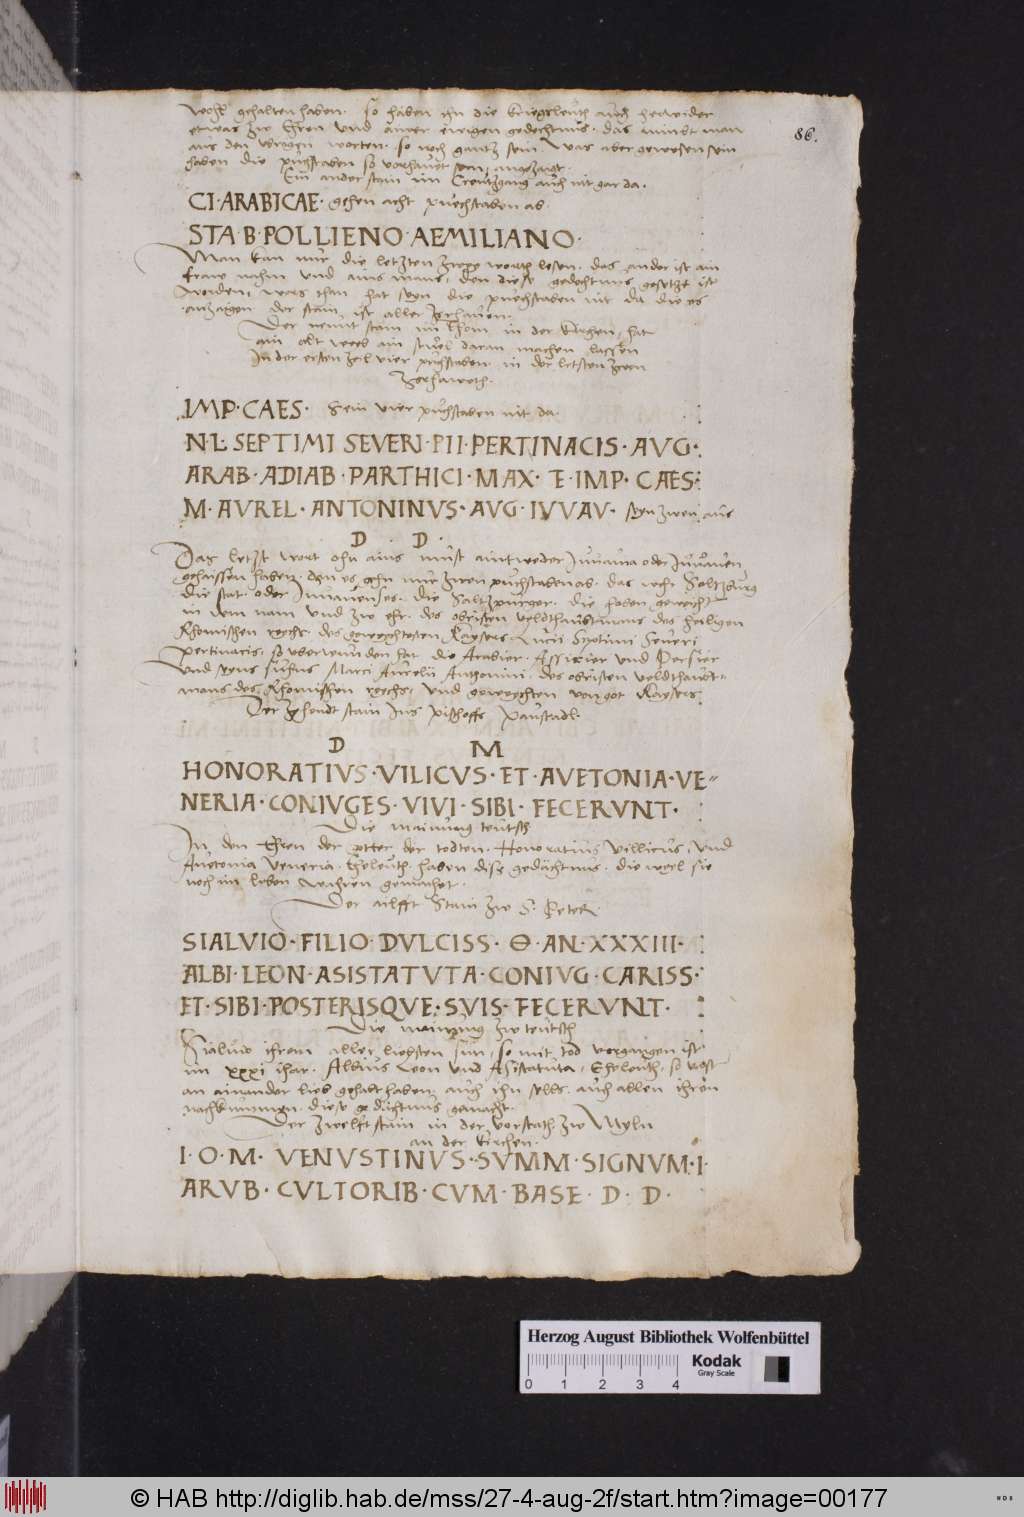 wohl gehalten haben. so haben ihn die kriegsleuth auch herwider
etwas zw Ehren und ainer ewigen gedechtnus. das mirckt man
aus den ubrigen worten. so noch gantz sein. was aber gewesen sein
haben die puchstaben so verhauet sein, angezaigt.
Ein ander stain im Creutzgang auch nit gar da.
CI·ARABICAE· gehen acht puechstaben ab.
STA·B·POLLIENO·AEMILIANO·
Man kan nur die letzten zwey worth lesen. das ander ist ain
fraw nahm und ains mans, den diese gedechtnus gesetzt ist
worden, wers than hat seyn die puechstaben nit da die es
anzaigen der stain ist aller zerhauen.
Der neunt stain im Thom in der kirchen, hat
ain alt weib ain stuel daran machen lassen
In der ersten zeil vier puchstaben. in der letsten zwen
86.
IMP·CAES· Sein vier puchstaben nit da.
N·L·SEPTIMI SEVERI·PII·PERTINACIS·AVG·
ARAB·ADIAB·PARTHICI·MAX·E·IMP·CAES·
M·AVREL·ANTONINVS·AVG·IVVAV· seyn zwen aus
D · D ·
Das letzt wort ohn ains must aintweder Juvavia oder Juvaven
gehaissen haben. den es gehn nur zwen puchstaben ab. das ist Saltzburg
die stat. oder Juvavenses. die Saltzpurger. die haben geweicht
in dem nam und zw ehr. des obristen veldthautmans des heiligen
Rhomischen reichs. des geweychtesten Kaysers Lucii Septimi Severi
pertinacis, so uberwunden hat die Arabier. Assirier und Persier
und seyns suhns Marci Aurelii Anthonini, des obristen veldthaubt=
mans des Rhomischen reychs, und geweychten von got Kaysers.
Der zehendt stain Ins pischoffs
D M
HONORATIVS·VILICVS·ET·AVETONIA·VE=
NERIA·CONIVGES·VIVI·SIBI·FECERVNT·
Die mainung teutsch
In den Ehren der gotter der todten. Honoratius Villicus, und
Avetonia Veneria. Eheleuth. haben dise gedächtnus. die weil sie
noch im leben wahren gemachet.
Der ailfft Stain zw S. Peter.
SIALVIO·FILIO·DVLCISS·Θ·AN·XXXIII·
ALBI·LEON·ASISTATVTA·CONIVG·CARISS·
ET·SIBI·POSTERISQVE·SVIS·FECERVNT·
Die mainung zw teutsch
Sialuio ihrem aller liebsten sun, so mit tod vergangen ist
im xxxi ihar. Albius Leon und Asistatuta, Eheleuth, so vast
an ainander lieb gehabt haben, auch ihn selbs. auch allen ihren
nachkumungen. diese gedächtnus gemacht.
Der zwelft stain in der vorstath zw Myln
an der kirchen.
I·O·M·VENVSTINVS·SVMM·SIGNVM·I·
ARVB·CVLTORIB·CVM·BASE·D·D·
Herzog August Bibliothek Wolfenbüttel
Kodak
Gray Scale
0 1 2 3 4
© HAB http://diglib.hab.de/mss/27-4-aug-2f/start.htm?image=00177